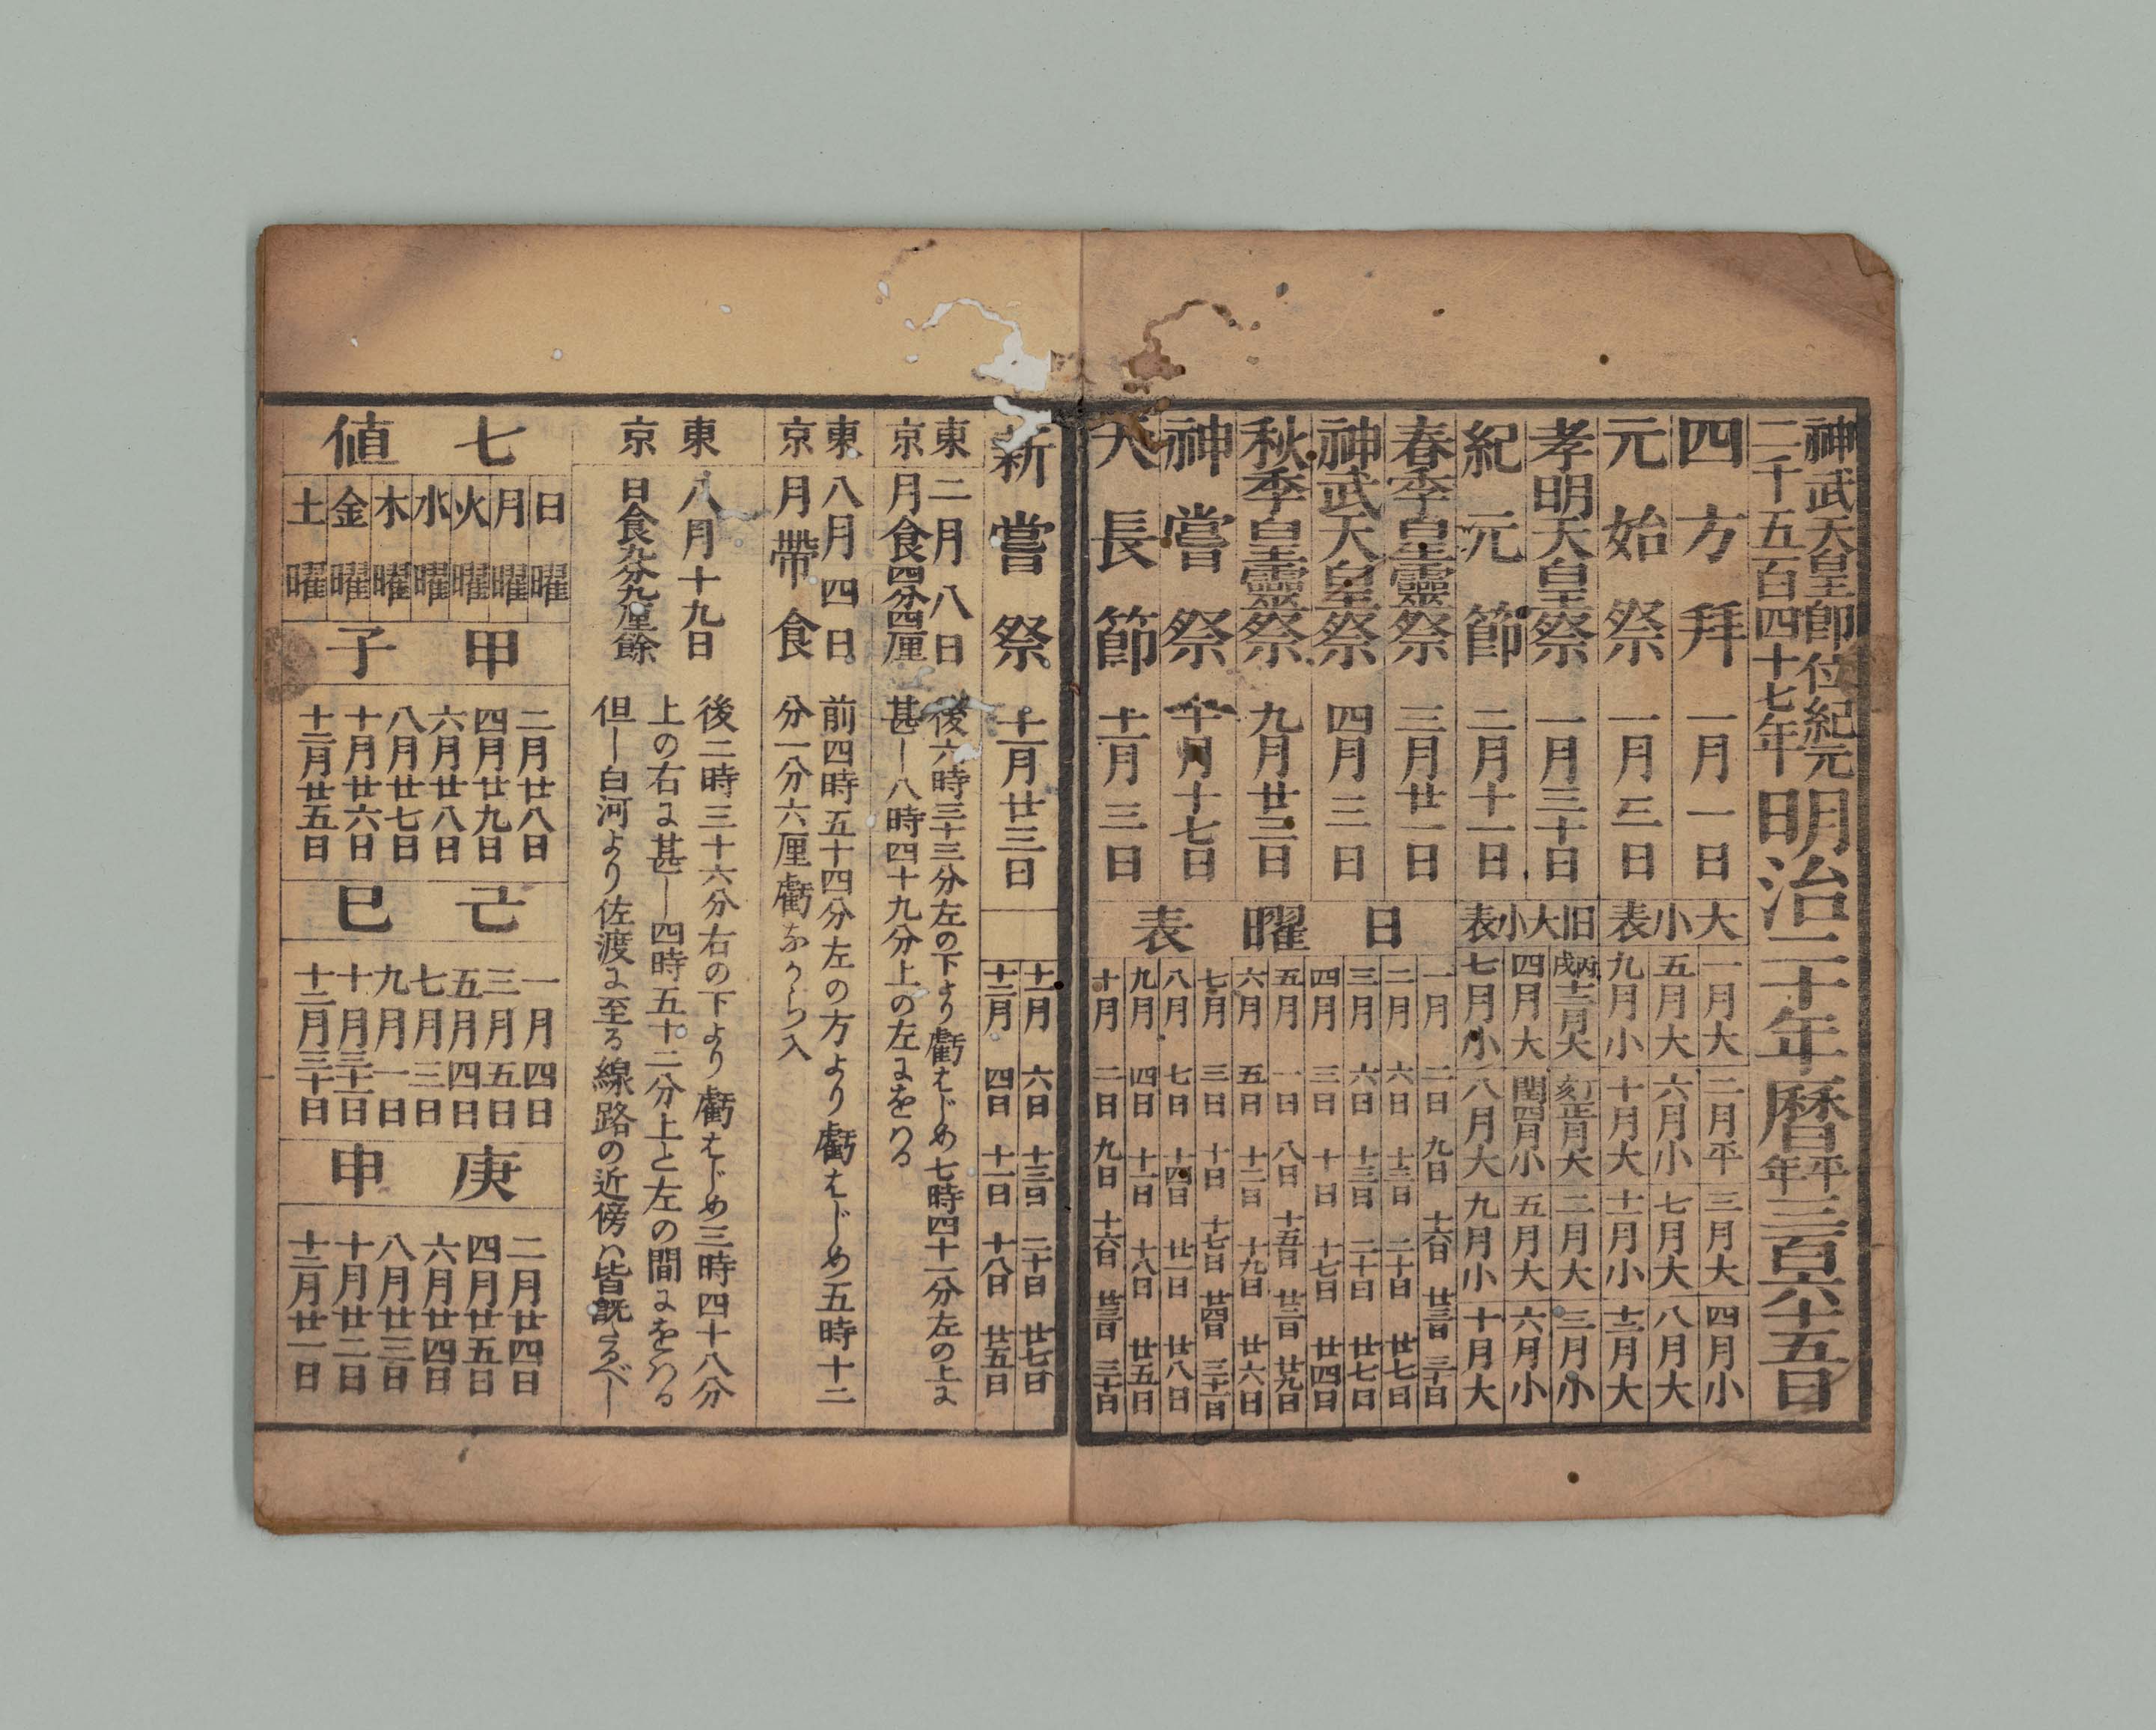 神武天皇即位紀元
二千五百四十七年
明治二十年暦
平年
三百六十五日
四方拜 一月一日
元始祭 一月三日
孝明天皇祭 一月三十日
紀元節 二月十一日
春季皇靈祭 三月廿一日
神武天皇祭 四月三日
秋季皇靈祭 九月廿三日
神嘗祭 十月十七日
天長節 十一月三日
大小表
一月大 二月平 三月大 四月小
五月大 六月小 七月大 八月大
九月小 十月大 十一月小 十二月大
旧大小表
丙戌十二月大 丁亥正月大 二月大 三月小
四月大 閏四月小 五月大 六月小
七月小 八月大 九月小 十月大
日曜表
一月 二日 九日 十六日 廿三日 三十日
二月 六日 十三日 二十日 廿七日
三月 六日 十三日 二十日 廿七日
四月 三日 十日 十七日 廿四日
五月 一日 八日 十五日 廿二日 廿九日
六月 五日 十二日 十九日 廿六日
七月 三日 十日 十七日 廿四日 三十一日
八月 七日 十四日 廿一日 廿八日
九月 四日 十一日 十八日 廿五日
十月 二日 九日 十六日 廿三日 三十日
新嘗祭 十一月廿三日
十一月 六日 十三日 二十日 廿七日
十二月 四日 十一日 十八日 廿五日
東京
二月八日
月食四分四厘
後六時三十三分左の下より虧はじめ七時四十一分左の上に
甚し八時四十九分上の左にをはる
東京
八月四日
月帶食
前四時五十四分左の方より虧はじめ五時十二
分一分六厘虧ながら入
東京
八月十九日
日食九分九厘餘
後二時三十六分右の下より虧はじめ三時四十八分
上の右に甚し四時五十二分上と左の間にをはる
但し白河より佐渡に至る線路の近傍ハ皆既なるべし
七値
日曜 月曜 火曜 水曜 木曜 金曜 土曜
甲子
二月廿八日
四月廿九日
六月廿八日
八月廿七日
十月廿六日
十二月廿五日
己巳
一月四日
三月五日
五月四日
七月三日
九月一日
十月三十一日
十二月三十日
庚申
二月廿四日
四月廿五日
六月廿四日
八月廿三日
十月廿二日
十二月廿一日